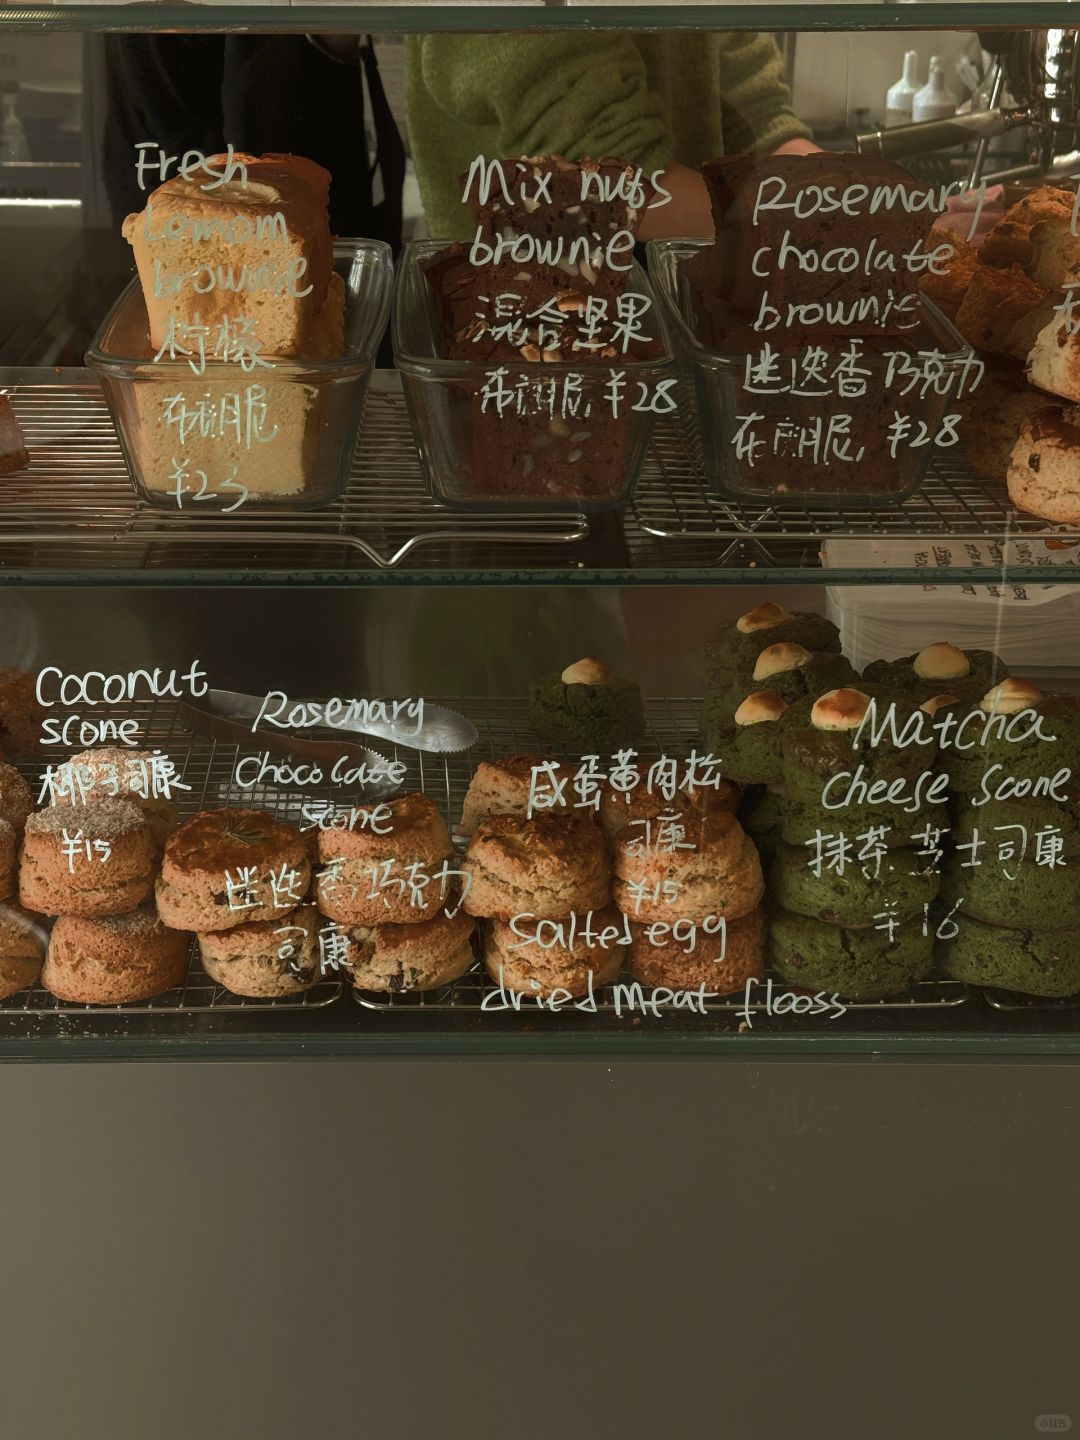 Fresh
Lomom
brownie
柠檬
布朗脆
￥23
Mix nuts
brownie
混合坚果
布朗脆,￥28
Rosemary
chocolate
brownie
迷迭香巧克力
布朗脆,￥28
Coconut
scone
椰子司康
￥15
Rosemary
Chocolate
scone
迷迭香巧克力
司康
咸蛋黄肉松
司康
￥15
Salted egg
dried meat flooss
Matcha
cheese scone
抹茶芝士司康
￥16
小红书